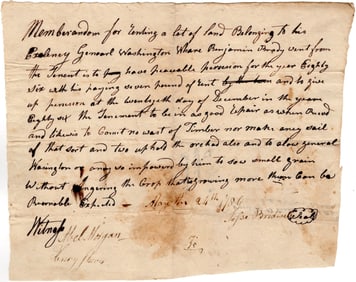 Memorandom for Renting a lot of land Belonging to his
Exelency General Washington Whare Benjamin went from
the Tenent is to have peaceable possession for the year Eighty
six with his paying seven pound of rent and to give
up possession at the twentyeth day of December in the year
Eighty six the Tenement to be in as good Repair as when
and likewis to Comit no wast of Timber nor make any sail
of that sort and two uphold the orchard also and to alow general
Wasington any imployed by him to sow small grain
Without Ingering the Crop that growing more than Can be
Resonable Expected 24th 1786
Witness
Abel Morgan